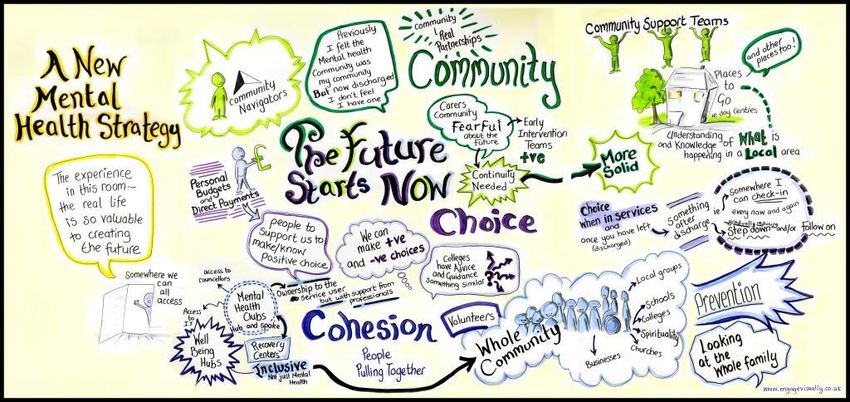 A New
Mental
Health Strategy
Community
Navigators
Previously
I felt the
Mental health
Community was
my community
But now discharged
I don't feel
I have one
community
Real
Partnerships
Community
Community Support Teams
and other
places too!
Places
to
Go
ie day Centres
Understanding
and Knowledge of What is
happening in a Local area
Carers
Community
Fearful
about the
Future
Early
Intervention
Teams
+ve
Continuity
Needed
More
Solid
The Future
Starts Now
The experience
in this room~
the real life
is so valuable
to creating
the future
Personal
Budgets
and
Direct Payments
£
people to
Support us to
make/know
Positive choice
We can
make +ve
and -ve choices
Choice
Colleges
have Advice
and Guidance
Something similar
Choice
when in services
and
once you have left
(discharged)
Something
after
discharge
ie
Somewhere I
can check-in
every now and again
gradually
Step down and/or follow on
somewhere we
can
all
access
access to
councellors
Mental
Health
Clubs
Hub and spoke
Ownership to the
service user
but with support from
professionals
Access
to
IT
Well
Being
Hubs
Recovery
Centers
Inclusive
Not just Mental
Health
Cohesion
People
Pulling Together
Volunteers
Whole
Community
Local groups
Schools
Colleges
Spirituality
Churches
Businesses
Prevention
Looking
at the
whole family
www.engagevisually.co.uk